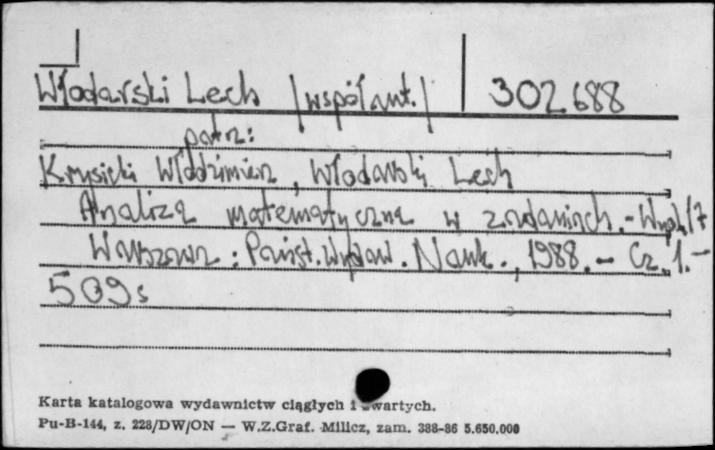 Włodarski Lech /współaut./ 302.688
patrz:
Krysicki Włodzimierz, Włodarski Lech
Analiza matematyczna w zadaniach. - Wyd. 17
Warszawa : Państ. Wydaw. Nauk., 1988. - Cz. 1. -
509 s
Karta katalogowa wydawnictw ciągłych i zwartych.
Pu-B-144, z. 228/DW/ON — W.Z.Graf. Milicz, zam. 388-86 5.650.000